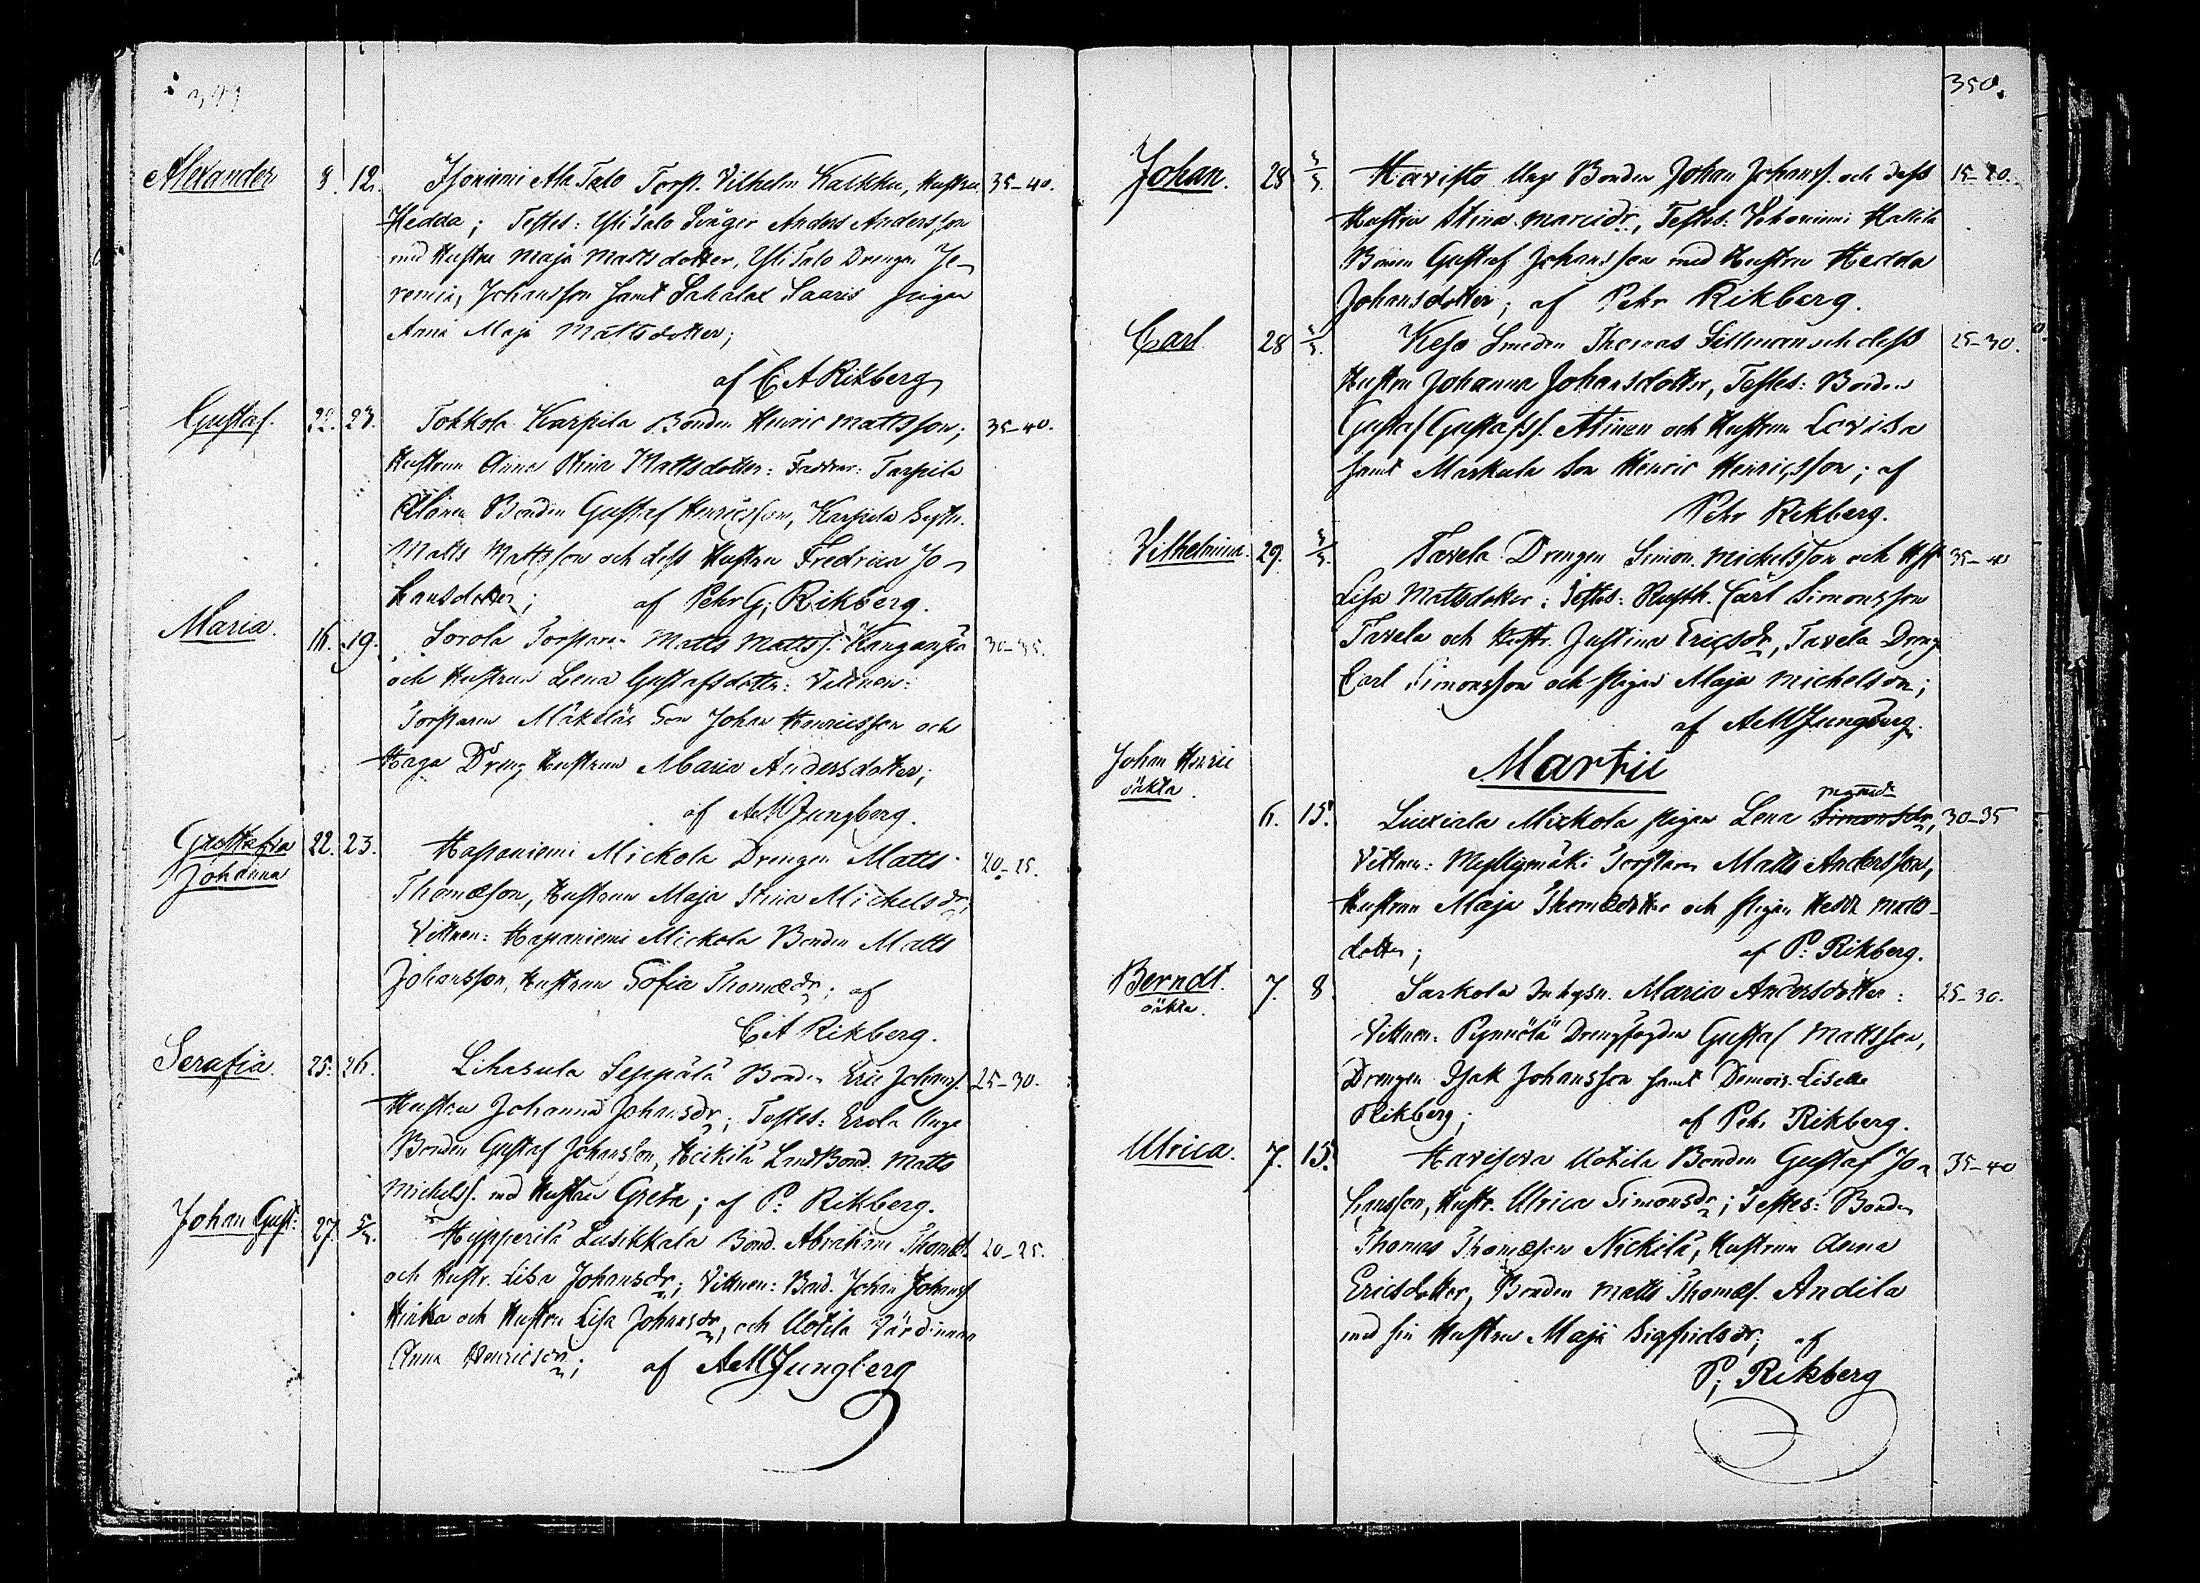 349
Alexander 8. 12. Isoniemi Ala Talo Torp. Vilhelm Kalkku, Hustru 35–40.
Hedda; Testes: Yli Talo Svåger Anders Andersson
med Hustru Maja Mattsdotter, Yli Talo Drengen Je-
remias Johansson samt Sahalax Saaris Pigan
Anna Maja Mattsdotter;
af C A Rikberg
Gustaf. 22. 23. Tokkola Karpila Bonden Henric Mattsson; 35–40.
Hustrun Anna Stina Mattsdotter: Faddrar: Tarpila
Alanen Bonden Gustaf Henricsson, Karpila Sytn.
Matts Mattsson och dess Hustru Fredrica Jo-
hansdotter; af Pehr G; Rikberg.
Maria. 16. 19. Sorola Torparen Matts Mattss. Kanganpä 30–35.
och Hustrun Lena Gustafsdotter: Vittnen:
Torparen Mäkeläs Son Johan Henricsson och
Haga Dreng Hustrun Maria Andersdotter;
af A M Jungberg.
Gustafva 22. 23. Haapaniemi Mickola Drengen Matts 20–25.
Johanna
Thomæson, Hustrun Maja Stina Michelsdr;
Vittnen: Hapaniemi Mickola Bonden Matts
Johansson, Hustrun Sofia Thomædr; af
C A Rikberg.
Serafia. 25. 26. Lihasula Seppälä Bonden Eric Johanss. 25–30.
Hustru Johanna Johansdr; Testes: Erola Unga
Bonden Gustaf Johansson, Heikilä LandBond. Matts
Michelss. med Hustru Greta; af P: Rikberg.
Johan Gust: 27. 5/3. Hypperilä Lusikkala Bond. Abraham Thomæs. 20–25.
och Hustr. Lisa Johansdr; Vittnen: Bond. Johan Johanss
Hinka och Hustru Lisa Johansdr, och Uotila Värdinnan
Anna Henricsdr; af A M Jungberg
350.
Johan. 28 5/3 Havisto Ung Bonden Johan Johanss. och dess 15–20.
Hustru Stina Marcidr., Testes: Vohoniemi Mattila
Bonden Gustaf Johansson med Hustru Hedda
Johansdotter; af Pehr Rikberg.
Carl 28 5/3. Keso Smeden Thomas Sillman och dess 25–30.
Hustru Johanna Johansdotter, Testes: Bonden
Gustaf Gustafss. Alinen och Hustrun Lovisa
samt Markula Son Henric Henricsson; af
Pehr Rikberg.
Vilhelmina. 29. 5/3. Tavela Drengen Simon Michelsson och Hst 35–40
Lisa Mattsdotter: Testes: Rusth. Carl Simonsson
Tavela och Hustr. Justina Ericsdr, Tavela Dreng
Carl Simonsson och Pigan Maja Michelsdr;
af A M Jungberg.
Martii
Johan Henric
oäkta.
Marcidr
6. 15. Liuxiala Mickola Pigan Lena Simonsdr, 30–35
Vittnen: Myllymäki Torparen Matts Andersson,
Hustrun Maja Thomædotter och Pigan Hedda Matts-
dotter; af P: Rikberg.
Berndt. 7. 8. Sarkola Inhysn. Maria Andersdotter: 25–30.
oäkta.
Vittnen: Pynnölä Drengfogden Gustaf Mattsson,
Drengen Isak Johansson samt Demois. Lisette
Rikberg; af Pehr Rikberg.
Ulrica. 7. 15. Havisova Uotila Bonden Gustaf Jo- 35–40
hansson, Hustr. Ulrica Simonsdr; Testes: Bonden
Thomas Thomæson Nickilä, Hustrun Anna
Ericsdotter, Bonden Matts Thomæs. Andila
med sin Hustru Maja Sigfridsdr; af
P; Rikberg